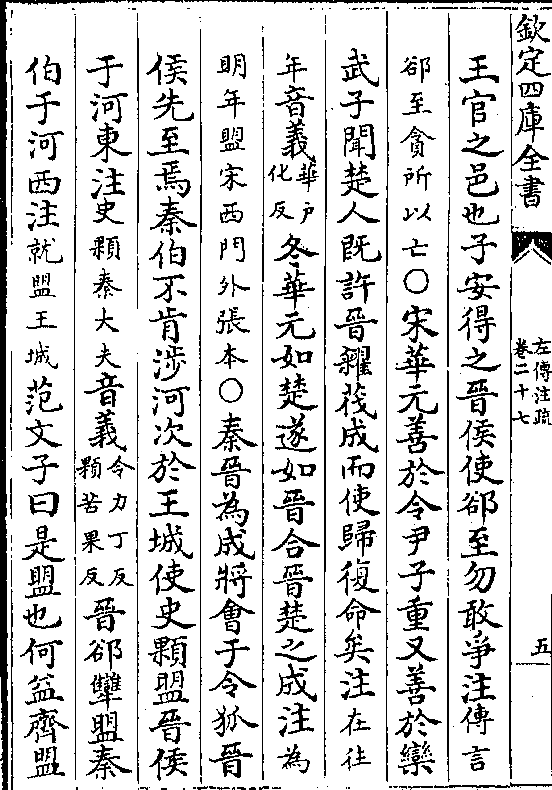 欽定四庫全書
左傳注疏
卷二十七
五
王官之邑也子安得之晉侯使郤至勿敢爭注傳言
郤至貪所以亡○宋華元善於令尹子重又善於欒
武子聞楚人既許晉糴茷成而使歸復命矣注在往
年音義華户化反冬華元如楚遂如晉合晉楚之成注為
明年盟宋西門外張本○秦晉為成將會于令狐晉
侯先至焉秦伯不肯涉河次於王城使史顆盟晉侯
于河東注史顆秦大夫音義令力丁反顆苦果反晉郤犨盟秦
伯于河西注就盟王城范文子曰是盟也何益齊盟